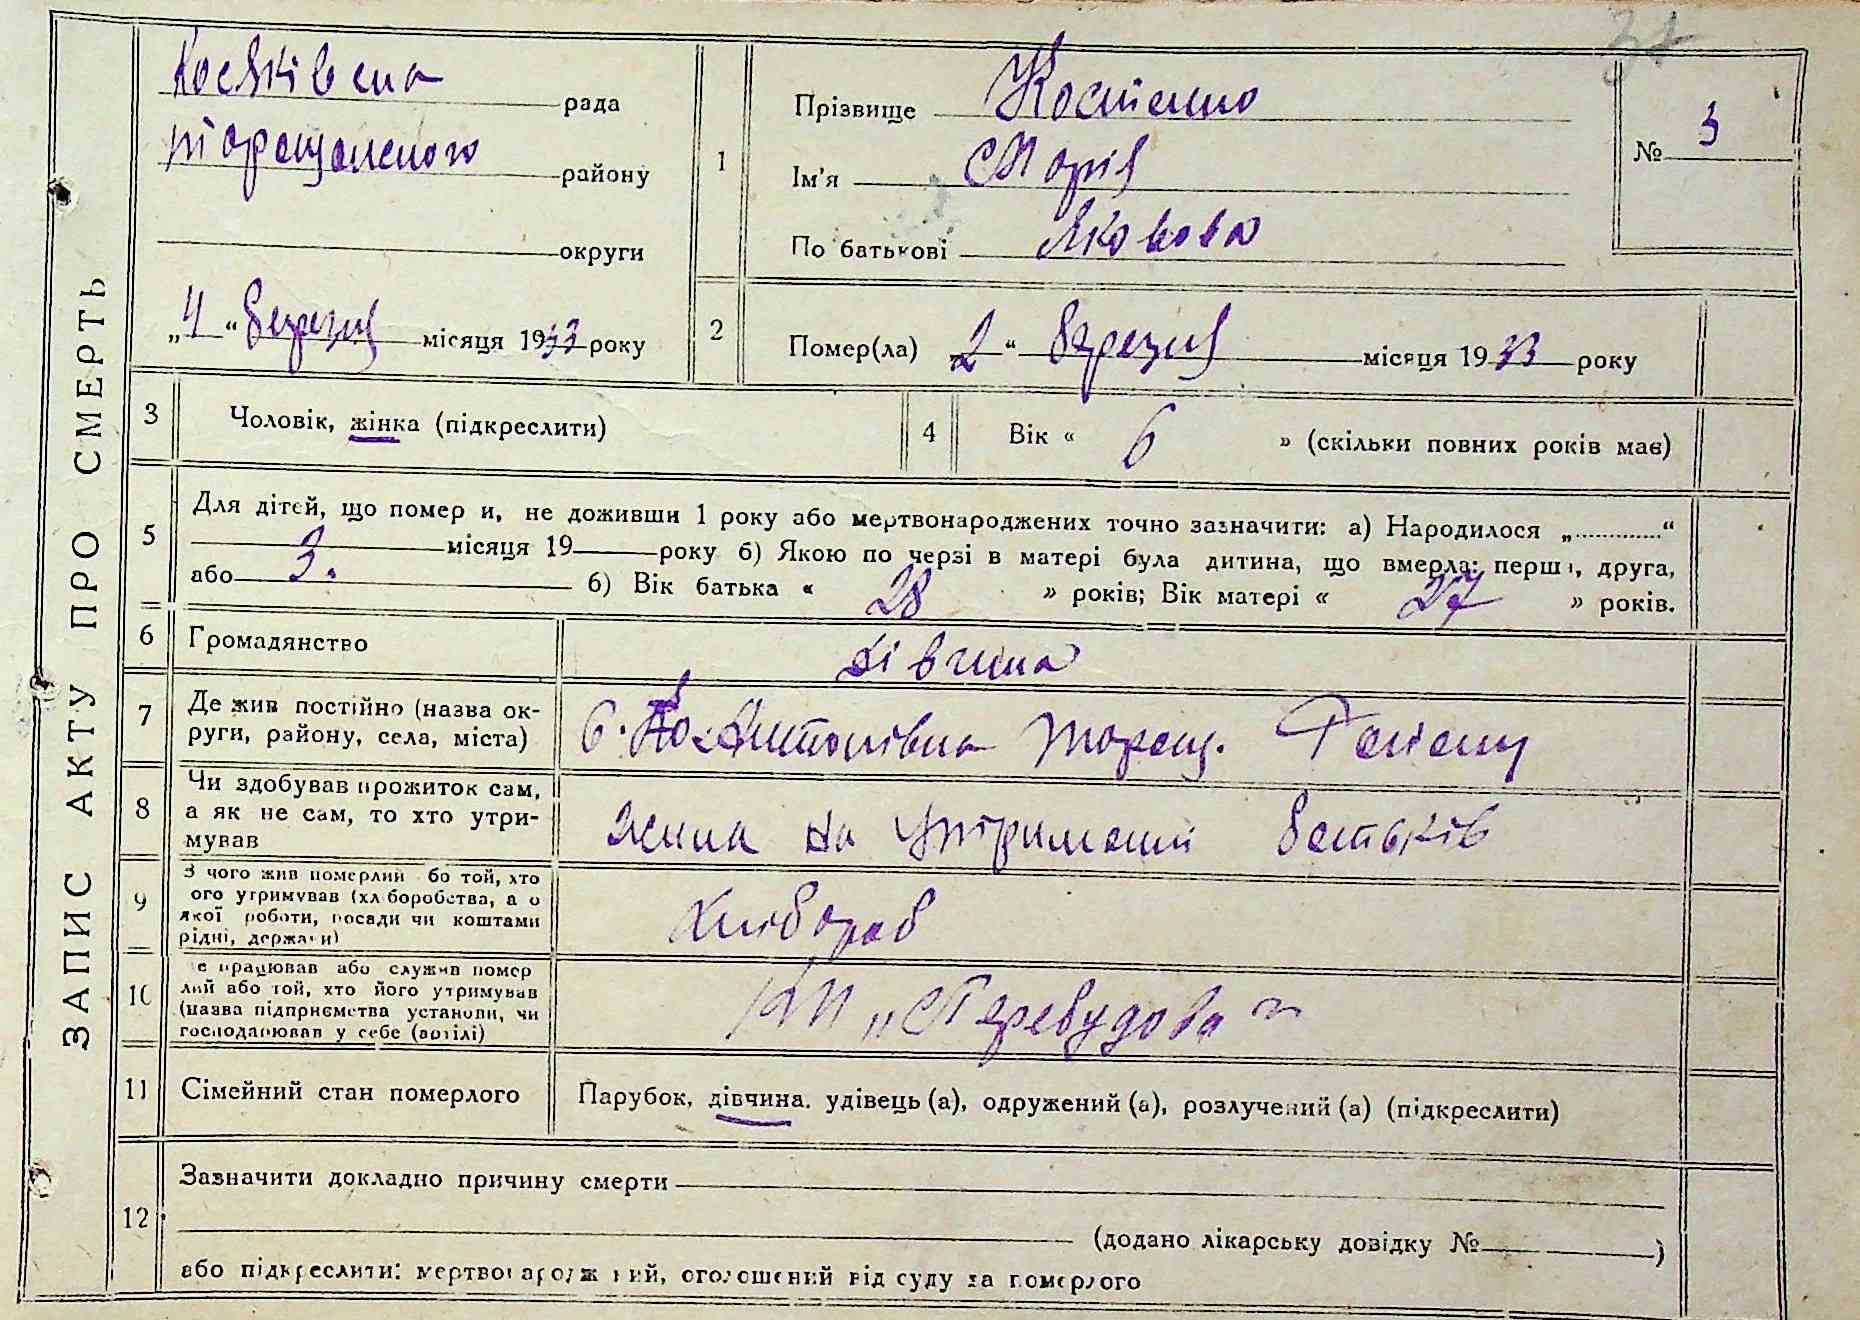 ЗАПИС АКТУ ПРО СМЕРТЬ
рада
Таращанського району
округи
„4“ березня місяця 1933 року
1
Прізвище Костенко
Ім'я Марія
По батькові Яковова
№ 3
2
Помер(ла) „2“ березня місяця 1933 року
3
Чоловік, жінка (підкреслити)
4
Вік « 6 » (скільки повних років має)
5
Для дітей, що померли, не доживши 1 року або мертвонароджених точно зазначити: а) Народилося „............“
місяця 19 року б) Якою по черзі в матері була дитина, що вмерла: перша, друга,
або 3. б) Вік батька « 28 » років; Вік матері « 27 » років.
6
Громадянство
дівчина
7
Де жив постійно (назва ок-
руги, району, села, міста)
с. Таращ. Району
8
Чи здобував прожиток сам,
а як не сам, то хто утри-
мував
жила на утриманні батьків
9
З чого жив померлий або той, хто
його утримував (хліборобства, а о
якої роботи, посади чи коштами
рідні, держави)
Хлібороб
10
Де працював або служив помер
лий або той, хто його утримував
(назва підприємства установи, чи
господарював у себе (вдома)
11
Сімейний стан померлого
Парубок, дівчина, удівець (а), одружений (а), розлучений (а) (підкреслити)
12
Зазначити докладно причину смерти
(додано лікарську довідку № )
або підкреслити: мертвонароджений, оголошений від суду за померлого